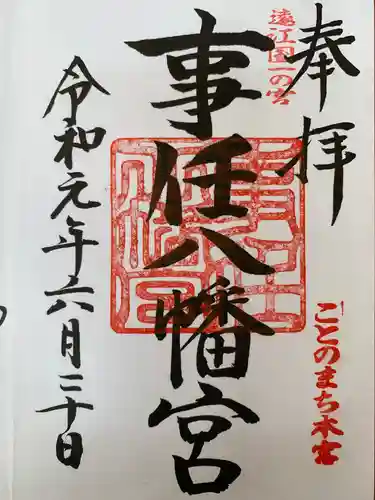 奉拝
遠江國一の宮
事任八幡宮
ことのまち本宮
令和元年六月三十日